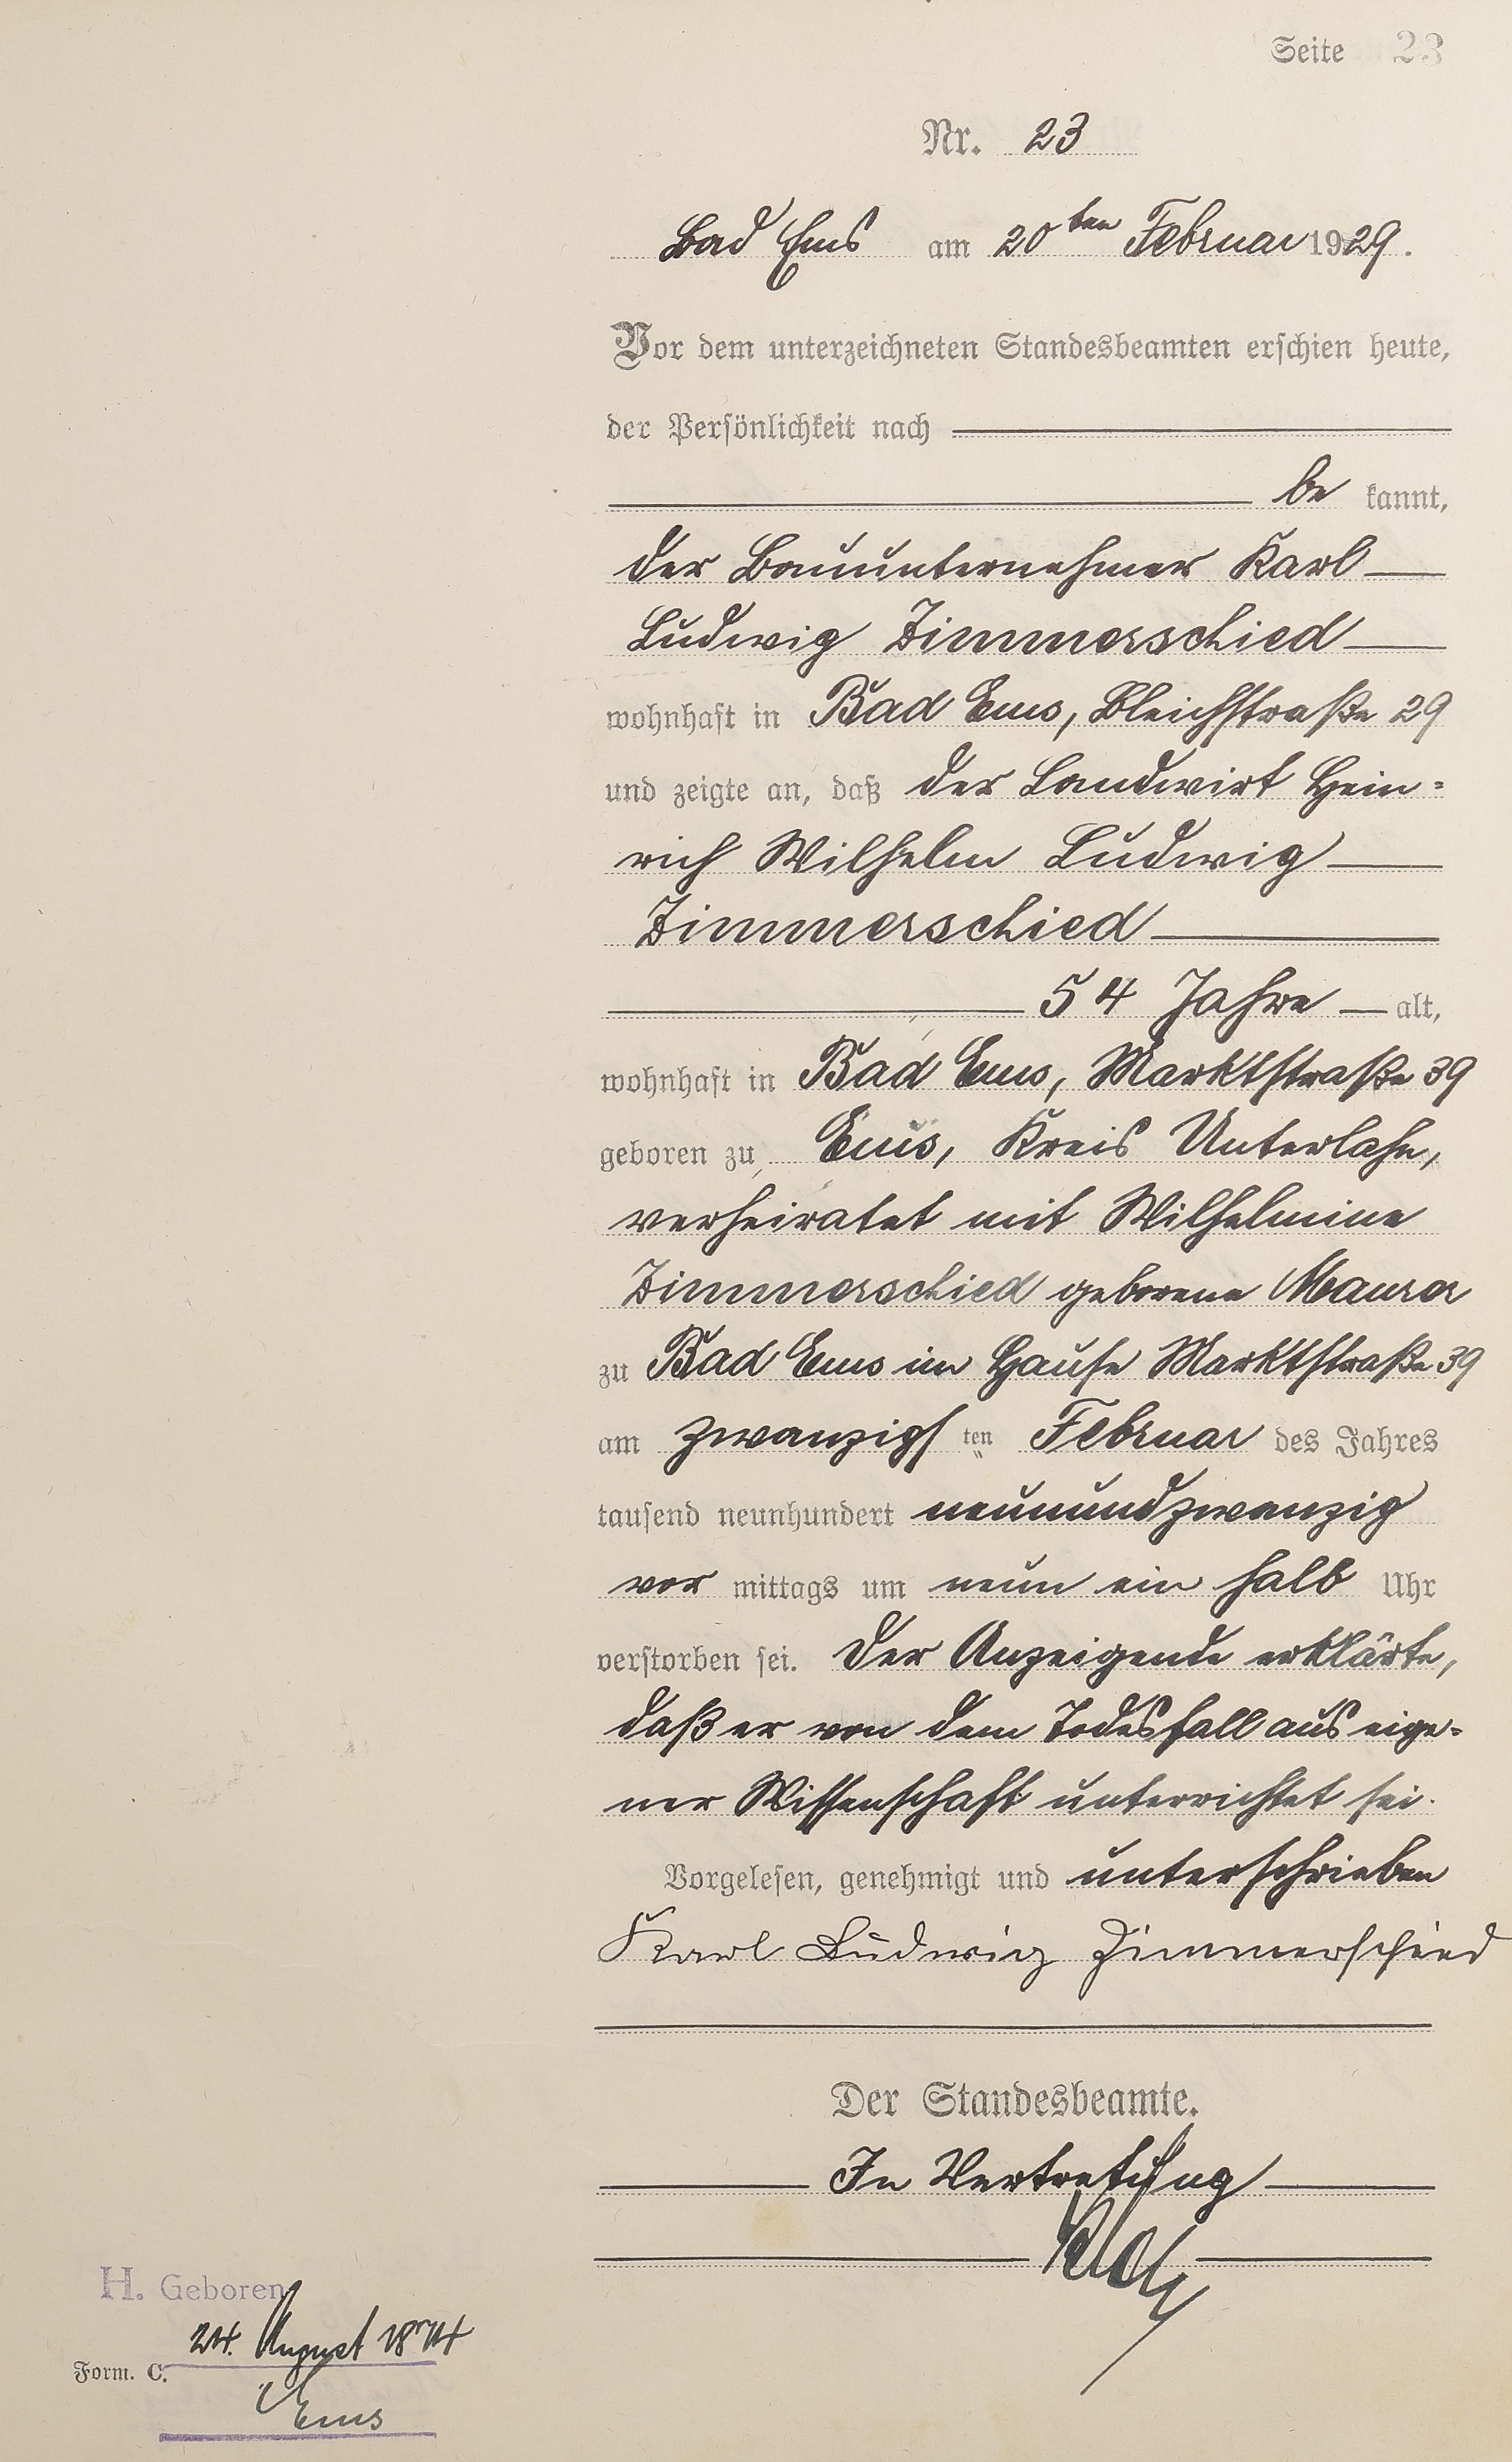 Seite 23
Nr. 23
Bad Ems am 20ten Februar 1929.
Vor dem unterzeichneten Standesbeamten erschien heute,
der Persönlichkeit nach
be kannt,
der Bauunternehmer Karl
Ludwig Zimmerschied
wohnhaft in Bad Ems, Bleichstraße 29
und zeigte an, daß der Landwirt Hein=
rich Wilhelm Ludwig
Zimmerschied
54 Jahre alt,
wohnhaft in Bad Ems, Marktstraße 39
geboren zu Ems, Kreis Unterlahn,
verheiratet mit Wilhelmine
Zimmerschied geborene Maurer
zu Bad Ems im Hause Marktstraße 39
am zwanzigsten Februar des Jahres
tausend neunhundert neunundzwanzig
vor mittags um neun ein halb Uhr
verstorben sei. Der Anzeigende erklärte,
daß er von dem Todesfall aus eige=
ner Wissenschaft unterrichtet sei.
Vorgelesen, genehmigt und unterschrieben
Karl Ludwig Zimmerschied
Der Standesbeamte.
In Vertretung
H. Geboren
24. August 1874
Form. C.
Ems